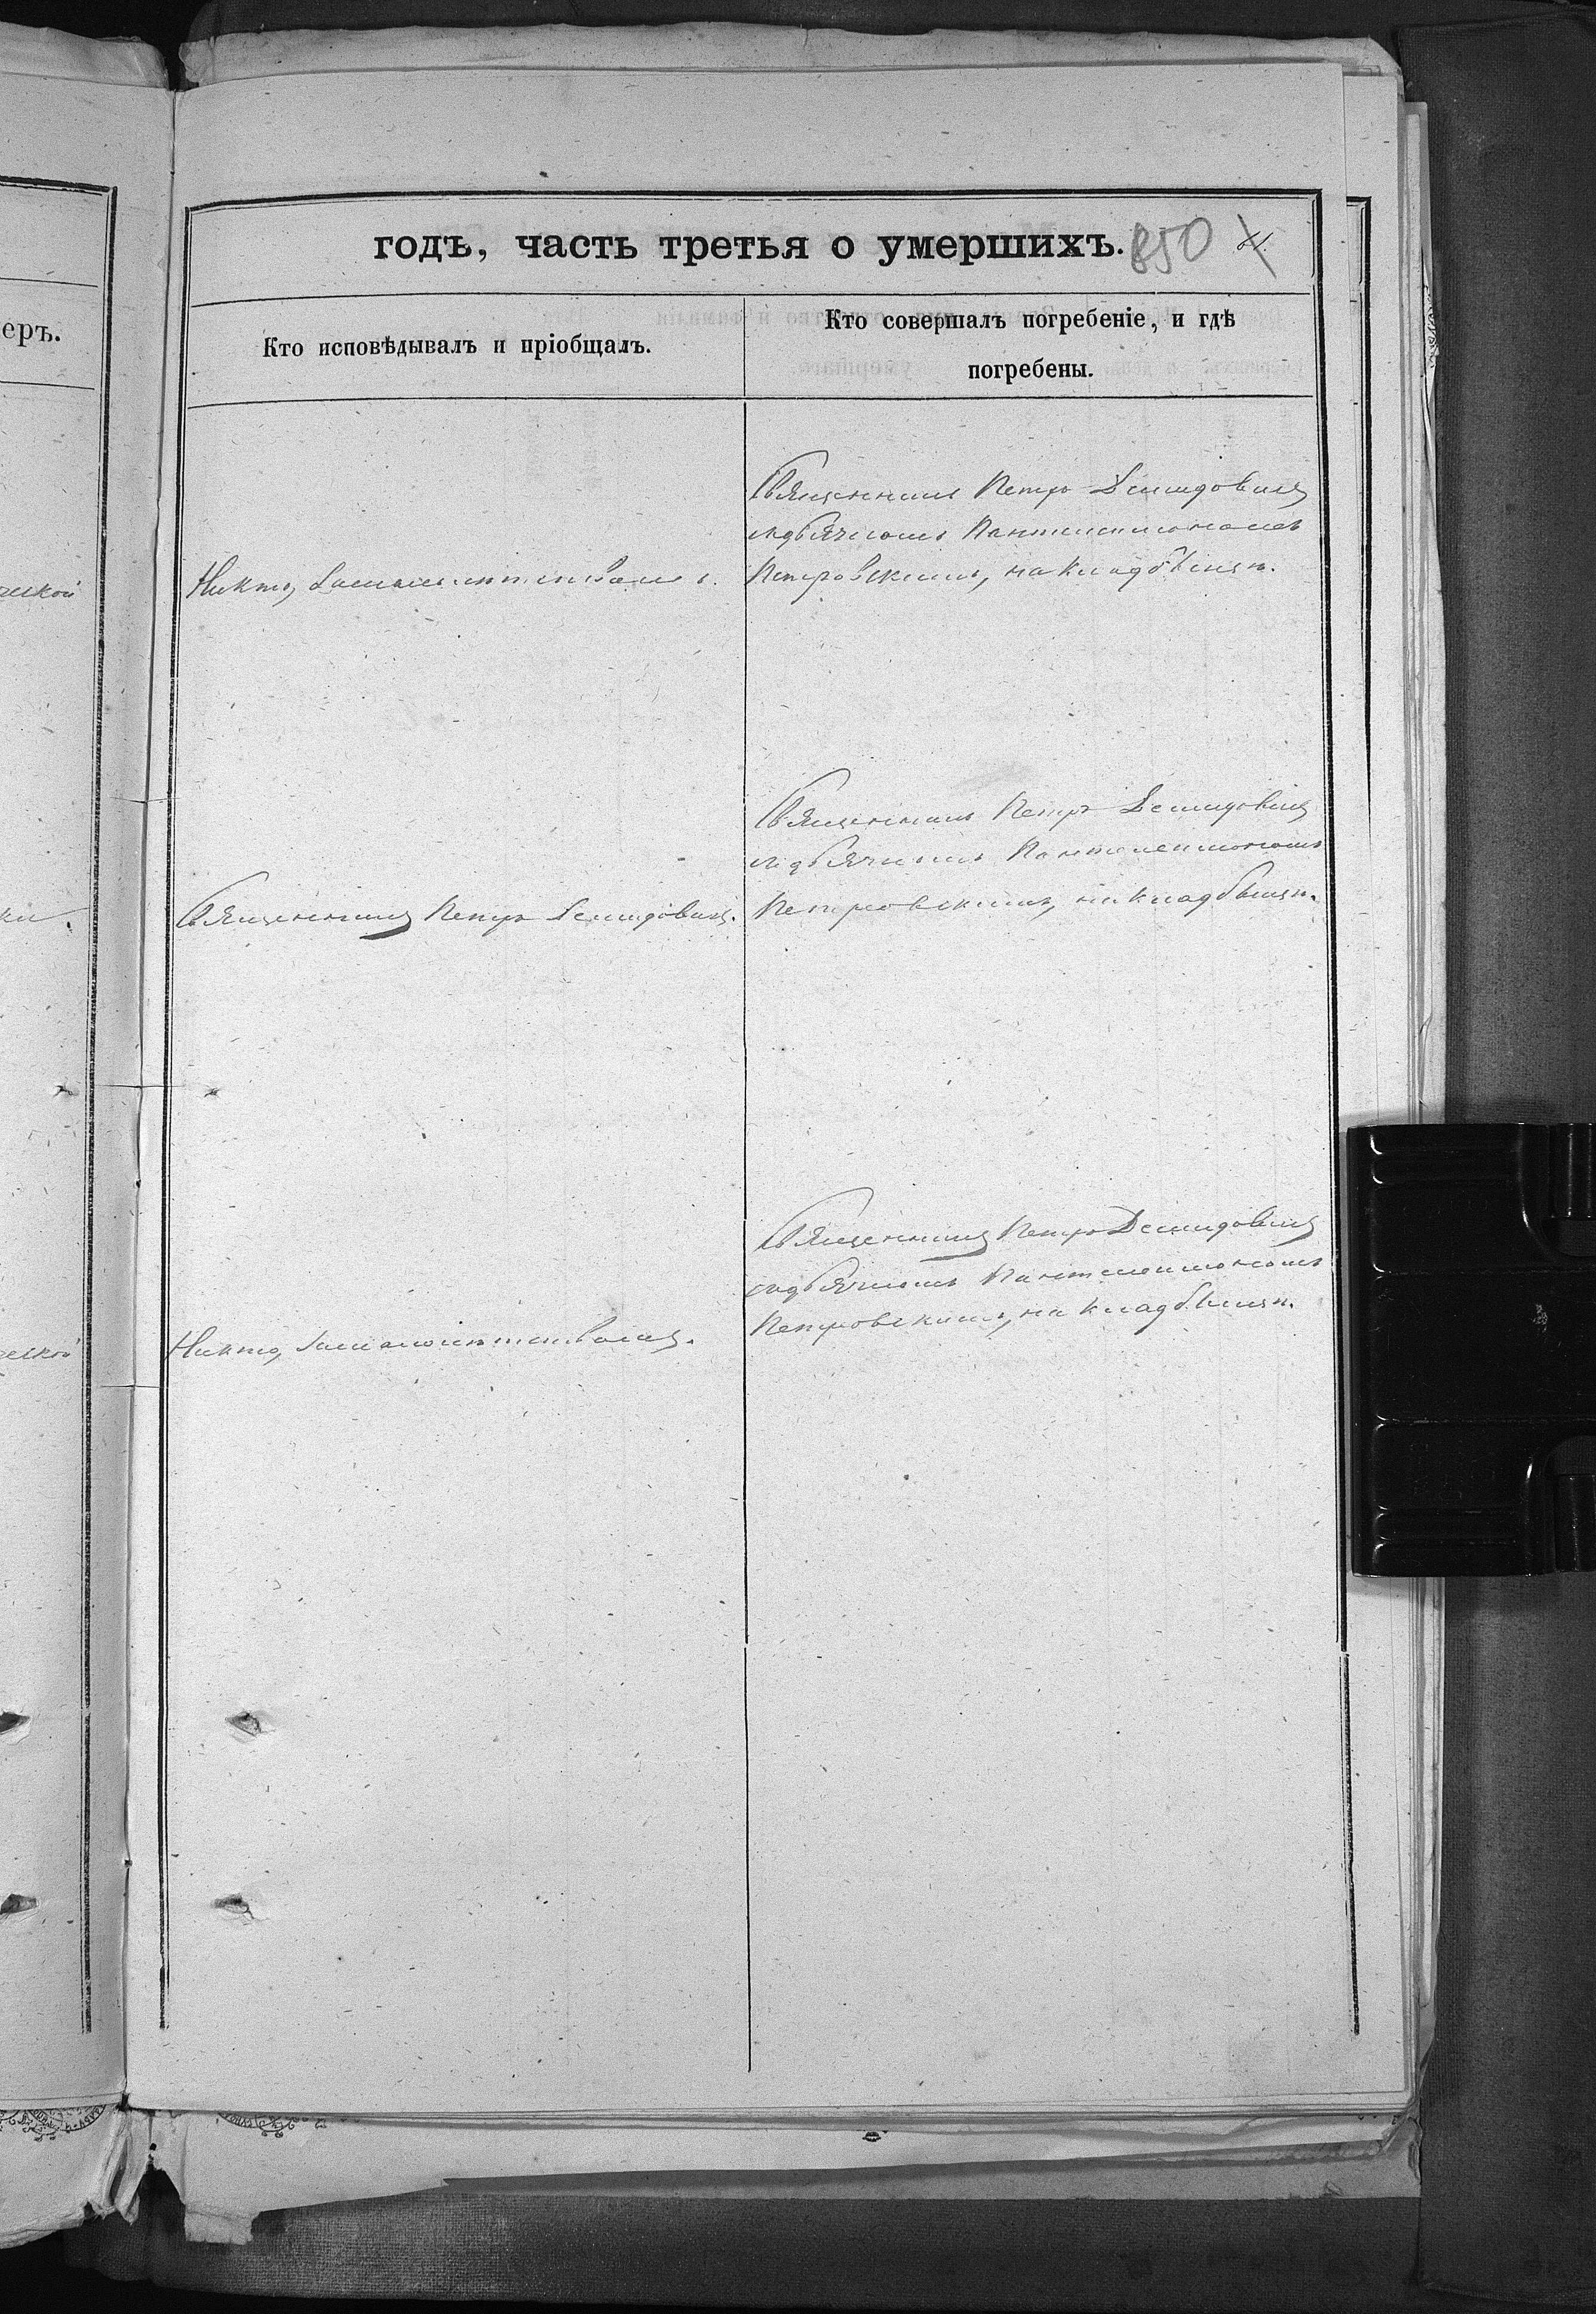 годъ, часть третья о умершихъ.
850
еръ.
Кто исповѣдывалъ и пріобщалъ.
Кто совершалъ погребеніе, и гдѣ
погребены.
Священникъ Петръ Демидовичъ
съ дьячкомъ Пантелеимономъ
Никто, за малолѣтствомъ.
Петровскимъ, на кладбищѣ.
Священникъ Петръ Демидовичъ
съ дьячкомъ Пантелеимономъ
Священникъ Петръ Демидовичъ.
Петровскимъ, на кладбищѣ.
Священникъ Петръ Демидовичъ
съ дьячкомъ Пантелеимономъ
Петровскимъ, на кладбищѣ.
Никто, за малолѣтствомъ.